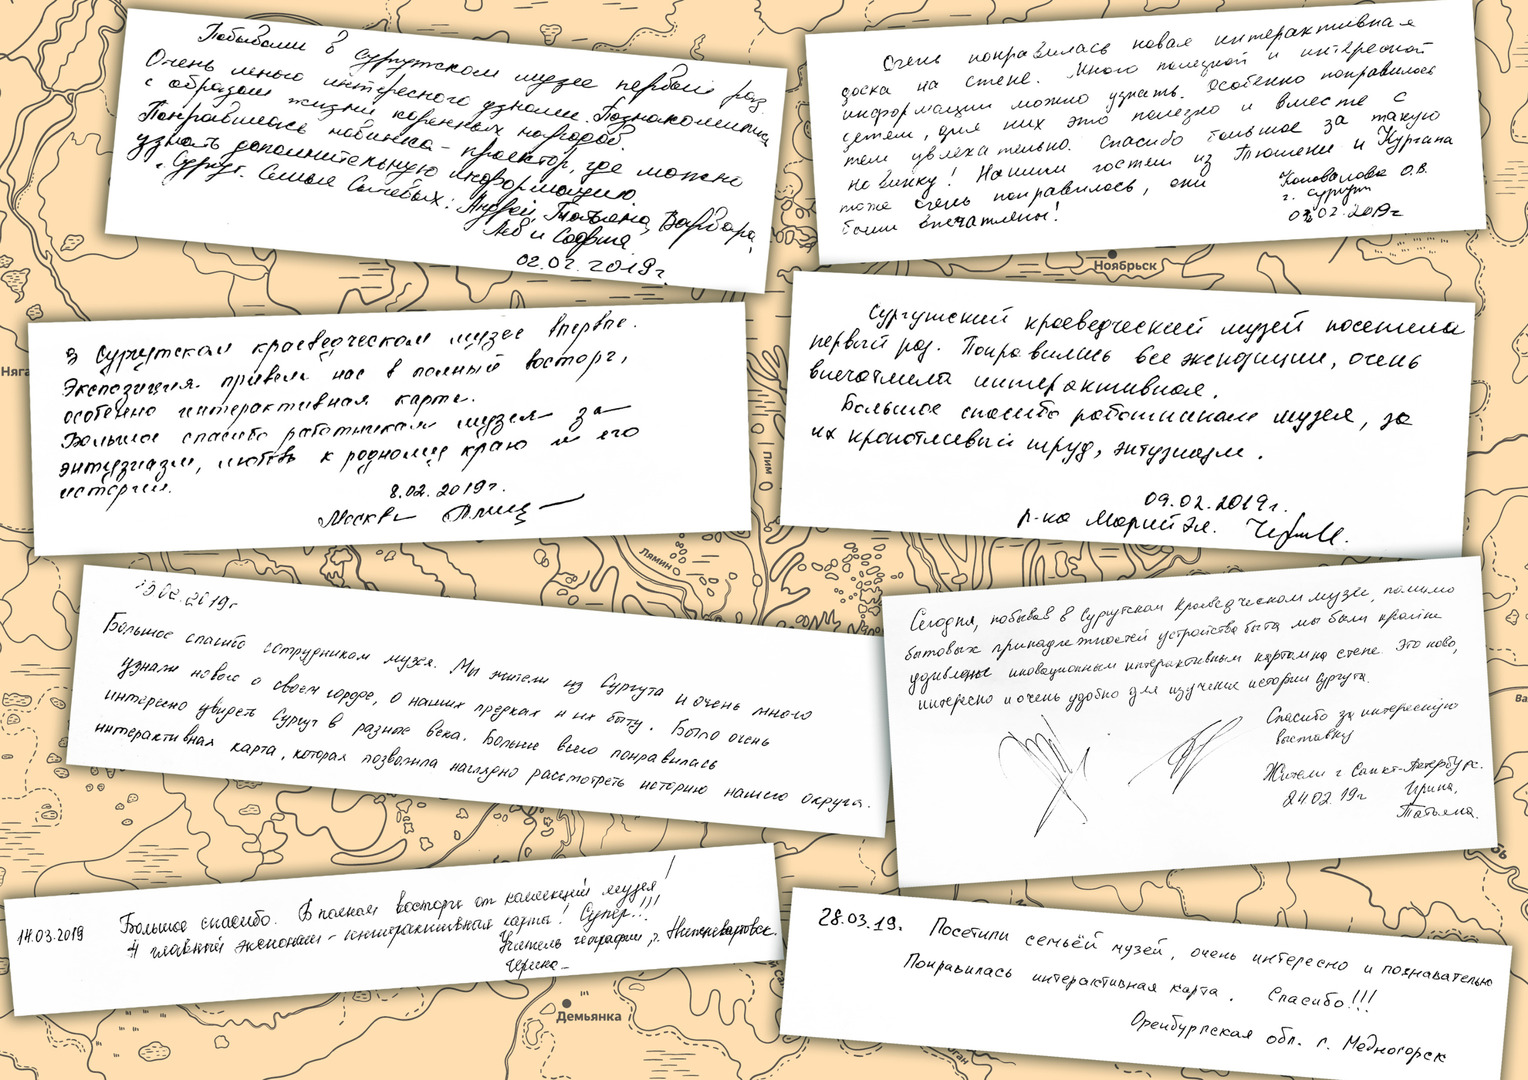 Побывали в сургутском музее первый раз.
Очень много интересного узнали. Познакомились
с образом жизни коренных народов.
Понравилась новинка - проектор, где можно
узнать дополнительную информацию.
г. Сургут. Семья Сычевых: Андрей, Татьяна, Варвара,
Лев и София
02.02.2019г.
Очень понравилась новая интерактивная
доска на стене. Много полезной и интересной
информации можно узнать. Особенно понравилось
детям, для них это полезно и вместе с
тем увлекательно. Спасибо большое за такую
новинку! Нашим гостям из Тюмени и Кургана
тоже очень понравилось, они
были впечатлены!
Коновалова О.В.
г. Сургут
02.2019г
Ноябрьск
В Сургутском краеведческом музее впервые.
Экспозиция привели нас в полный восторг,
особенно интерактивная карта.
Большое спасибо работникам музея за
энтузиазм, любовь к родному краю и его
истории.
8.02.2019г.
Москва
Няга
Сургутский краеведческий музей посетила
первый раз. Понравились все экспозиции, очень
впечатлила интерактивная.
Большое спасибо работникам музея, за
их кропотливый труд, энтузиазм.
09.02.2019г.
р-ка Марий Эл.
Пим
Лямин
02.2019г
Большое спасибо сотрудникам музея. Мы жители из Сургута и очень много
узнали нового о своем городе, о наших предках и их быту. Было очень
интересно увидеть Сургут в разные века. Больше всего понравилась
интерактивная карта, которая позволила наглядно рассмотреть историю нашего округа.
Сегодня, побывав в Сургутском Краеведческом музее, помимо
бытовых принадлежностей устройства быта мы были крайне
удивлены иновационным интерактивным картам на стене. Это ново,
интересно и очень удобно для изучения истории Сургута.
Спасибо за интересную
выставку
Жители г Санкт-Петербург.
24.02.19г Ирина,
Татьяна.
14.03.2019
Большое спасибо. В полном восторге от коллекций музея!
А главный экспонат - интерактивная карта! Супер!!!
Учитель географии, г. Нижневартовск.
Ирина
Демьянка
28.03.19. Посетили семьёй музей, очень интересно и познавательно
Понравилась интерактивная карта. Спасибо!!!
Оренбургская обл. г. Медногорск